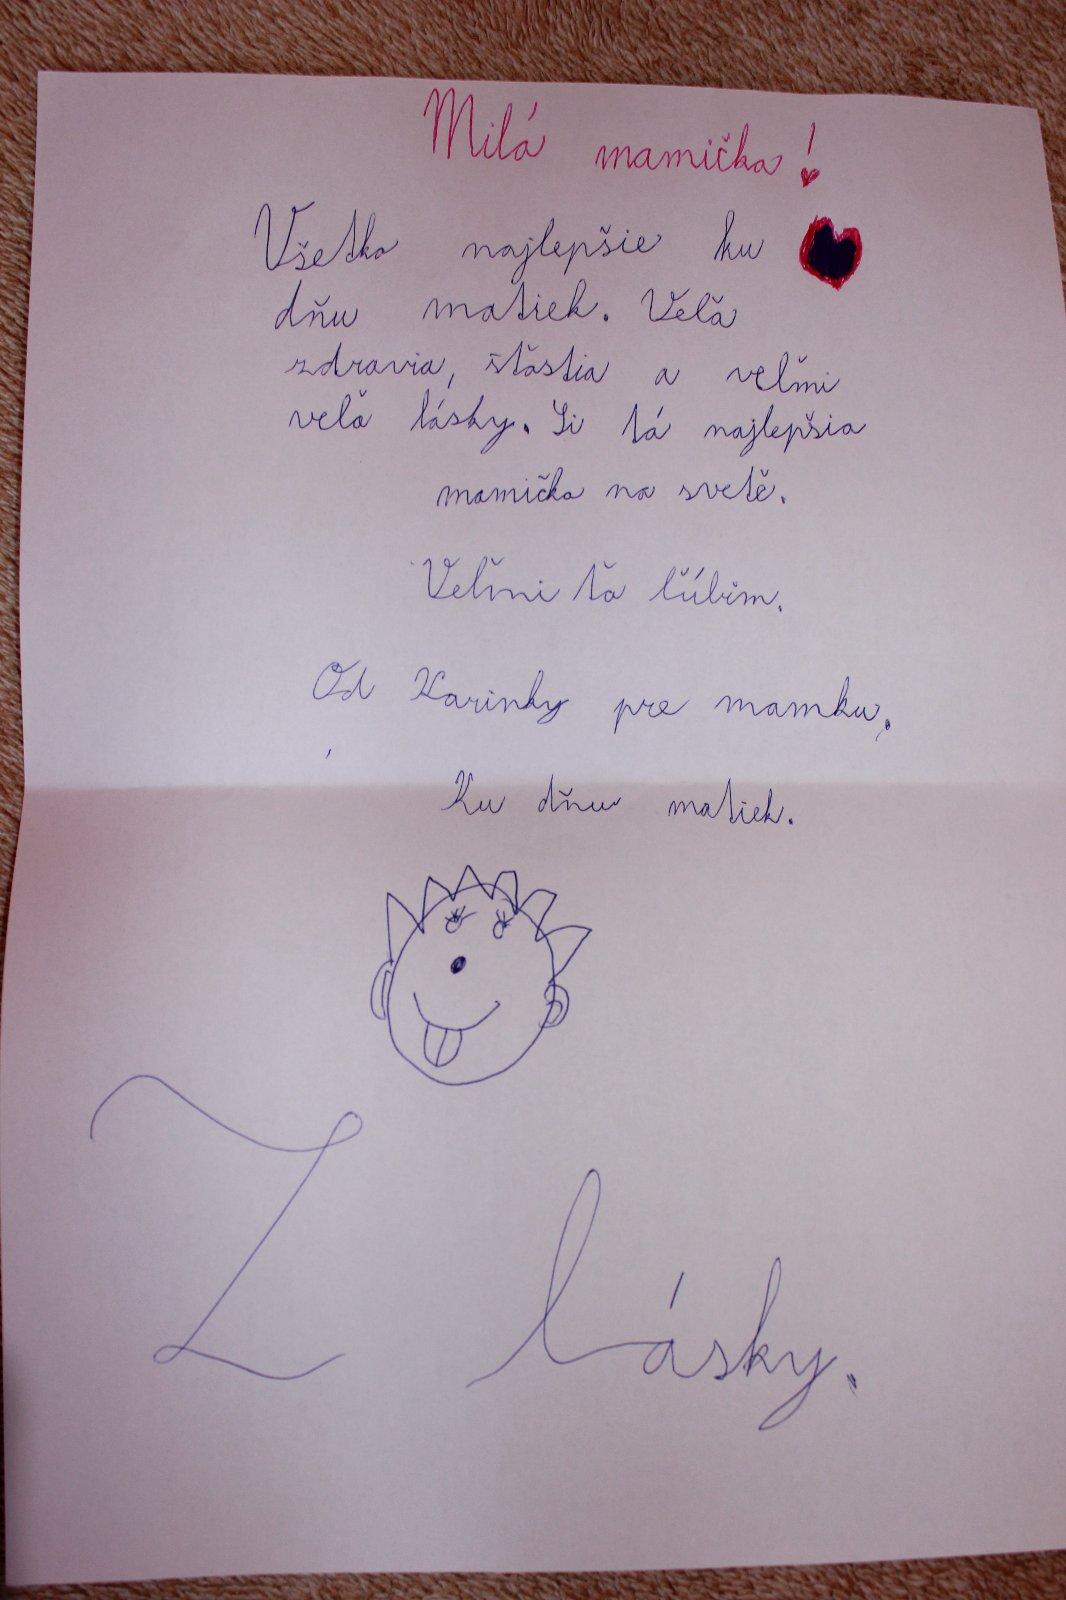 Milá mamička!
Všetko najlepšie ku
dňu matiek. Veľa
zdravia, šťastia a veľmi
veľa lásky. Si tá najlepšia
mamička na svetě.
Veľmi ťa ľúbim.
Od Karinky pre mamku.
Ku dňu matiek.
Z lásky.